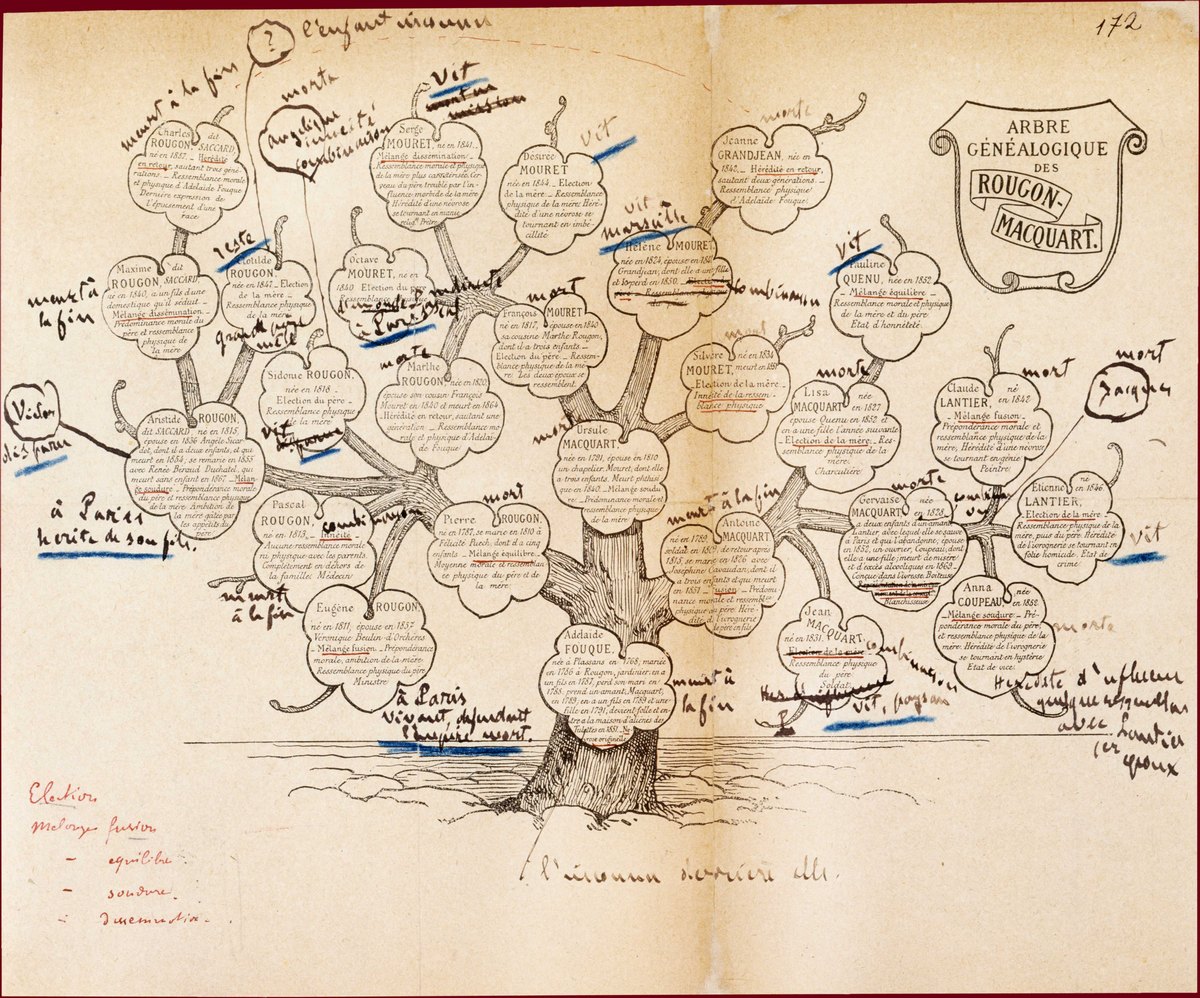 172
ARBRE
GÉNÉALOGIQUE
DES
ROUGON-
MACQUART.
?
l'enfant inconnu
meurt à la fin
Charles dit
ROUGON, SACCARD,
né en 1857. _ Hérédité
en retour, sautant trois géné-
rations. _ Ressemblance morale
et physique d'Adelaïde Fouque.
Dernière expression de
l'épuisement d'une
race
morte
angelique
inneité
combinaison
Vit
Serge
MOURET, né en 1841. _
Mélange dissémination. _
Ressemblance morale et physique
de la mère plus caractérisée. Cer-
veau du père troublé par l'in-
fluence morbide de la mère.
Hérédité d'une névrose se
tournant en manie
Prêtre
vit
Désirée
MOURET
née en 1844. _ Election
de la mère. _ Ressemblance
physique de la mère. Héré-
dité d'une névrose se
tournant en imbé-
cillité
morte
Jeanne
GRANDJEAN, née en
1842. _ Hérédité en retour,
sautant deux générations. _
Ressemblance physique
d'Adelaïde Fouque.
meurt à
la fin
Maxime dit
ROUGON, SACCARD,
né en 1840, a un fils d'une
domestique qu'il séduit. _
Mélange dissémination. _
Prédominance morale du
père et ressemblance
physique de
la mère
reste
Clotilde
ROUGON,
née en 1847. _ Election
de la mère. _
Ressemblance physique
de la mère
Octave
MOURET, né en
1840. Election du père. _
Ressemblance physique
à Paris
mort
François
MOURET
né en 1817, épouse en 1840
sa cousine Marthe Rougon,
dont il a trois enfants. _
Election du père. _ Ressem-
blance physique de la mè-
re. Les deux époux se
ressemblent.
vit
marseille
Hélène MOURET,
née en 1824, épouse en 18
Grandjean, dont elle a une fille
et le perd en 1850. _
combinaison
vit
Pauline
QUENU, née en 1852.
_ Mélange équilibre. _
Ressemblance morale et physique
de la mère et du père
Etat d'honnêteté.
Sidonie ROUGON,
née en 1818. _
Election du père. _
Ressemblance physique
de la mère
vit
morte
Marthe
ROUGON, née en 1820,
épouse son cousin François
Mouret en 1840 et meurt en 1864
_ Hérédité en retour, sautant une
génération. _ Ressemblance mo-
rale et physique d'Adélaï-
de Fouque
mort
Silvère né en 1834
MOURET, meurt en 1851
_ Election de la mère. _
Innéité de la ressem-
blance physique
morte
Lisa née
MACQUART en 1827
épouse Quenu en 1852 et
en a une fille l'année suivante
_ Election de la mère. _ Res-
semblance physique de la
mère.
Charcutière
mort
Claude né
LANTIER, en 1842
_ Mélange fusion. _
Prépondérance morale et
ressemblance physique de la
mère, Hérédité d'une névrose
se tournant en génie
Peintre.
mort
Jacques
Victor
disparu
Aristide ROUGON,
dit SACCARD né en 1815,
épouse en 1836 Angèle Sicar-
dot, dont il a deux enfants, et qui
meurt en 1854; se remarie en 1855
avec Renée Béraud Duchatel, qui
meurt sans enfant en 1867. _ Mélan-
ge soudure. _ Prépondérance morale
du père et ressemblance physique
de la mère. Ambition de
la mère gâtée par
les appétits du
père
à Paris
hérite de son fils.
mort
Ursule
MACQUART
née en 1791, épouse en 1810
un chapelier, Mouret, dont elle
a trois enfants. Meurt phthisi-
que en 1840. _ Mélange soudu-
re. _ Prédominance morale et
ressemblance physique
de la mère
Pascal
ROUGON,
né en 1813. _ Innéité. _
Aucune ressemblance morale
ni physique avec les parents.
Complètement en dehors de
la famille. Médecin
combinaison
meurt
à la fin
mort
Pierre ROUGON,
né en 1787, se marie en 1810 à
Félicité Puech, dont il a cinq
enfants. _ Mélange équilibre. _
Moyenne morale et ressemblan-
ce physique du père et de
la mère.
meurt à la fin
Antoine
MACQUART
né en 1789,
soldat en 1809, de retour après
1815, se marie en 1826 avec
Joséphine Gavaudan, dont il
a trois enfants et qui meurt
en 1851 _ fusion. _ Prédomi-
nance morale et ressemblan-
ce physique du père. Héré-
dité de l'ivrognerie
de père en fils
morte
Gervaise née
MACQUART en 1828.
a deux enfants d'un amant,
Lantier, avec lequel elle se sauve
à Paris et qui l'abandonne; épouse
en 1852, un ouvrier, Coupeau, dont
elle a une fille; meurt de misère
et d'excès alcooliques en 1869 _
Conçue dans l'ivresse. Boiteuse
Blanchisseuse
Etienne né
LANTIER, en 1846.
_ Election de la mère. _
Ressemblance physique de la
mère, puis du père. Hérédité
de l'ivrognerie se tournant en
folie homicide. Etat de
crime.
vit
Eugène ROUGON,
né en 1811, épouse en 1857
Véronique Beulin d'Orchères.
_ Mélange fusion. _ Prépondérance
morale, ambition de la mère.
Ressemblance physique du père
Ministre
à Paris
vivant, défendant
l'empire mort.
Adelaïde
FOUQUE,
née à Plassans en 1768, mariée
en 1786 à Rougon, jardinier; en a
un fils en 1787, perd son mari en
1788; prend un amant, Macquart,
en 1789; en a un fils en 1789 et une
fille en 1791, devient folle et en-
tre à la maison d'aliénés des
Tulettes en 1851. _ Né-
vrose originelle
meurt à
la fin
Jean
MACQUART,
né en 1831. _
Election de la mère. _
Ressemblance physique
du père.
Soldat
combinaison
vit, paysan
Anna née
COUPEAU, en 1852.
_ Mélange soudure. _ Pré-
pondérance morale du père,
et ressemblance physique de la
mère. Hérédité de l'ivrognerie
se tournant en hystérie
Etat de vice.
morte
Hérédité d'influence
avec Lantier
1er
époux
Election
Melange fusion
_ equilibre
_ soudure.
_ dissemination.
l'inconnu derrière elle.